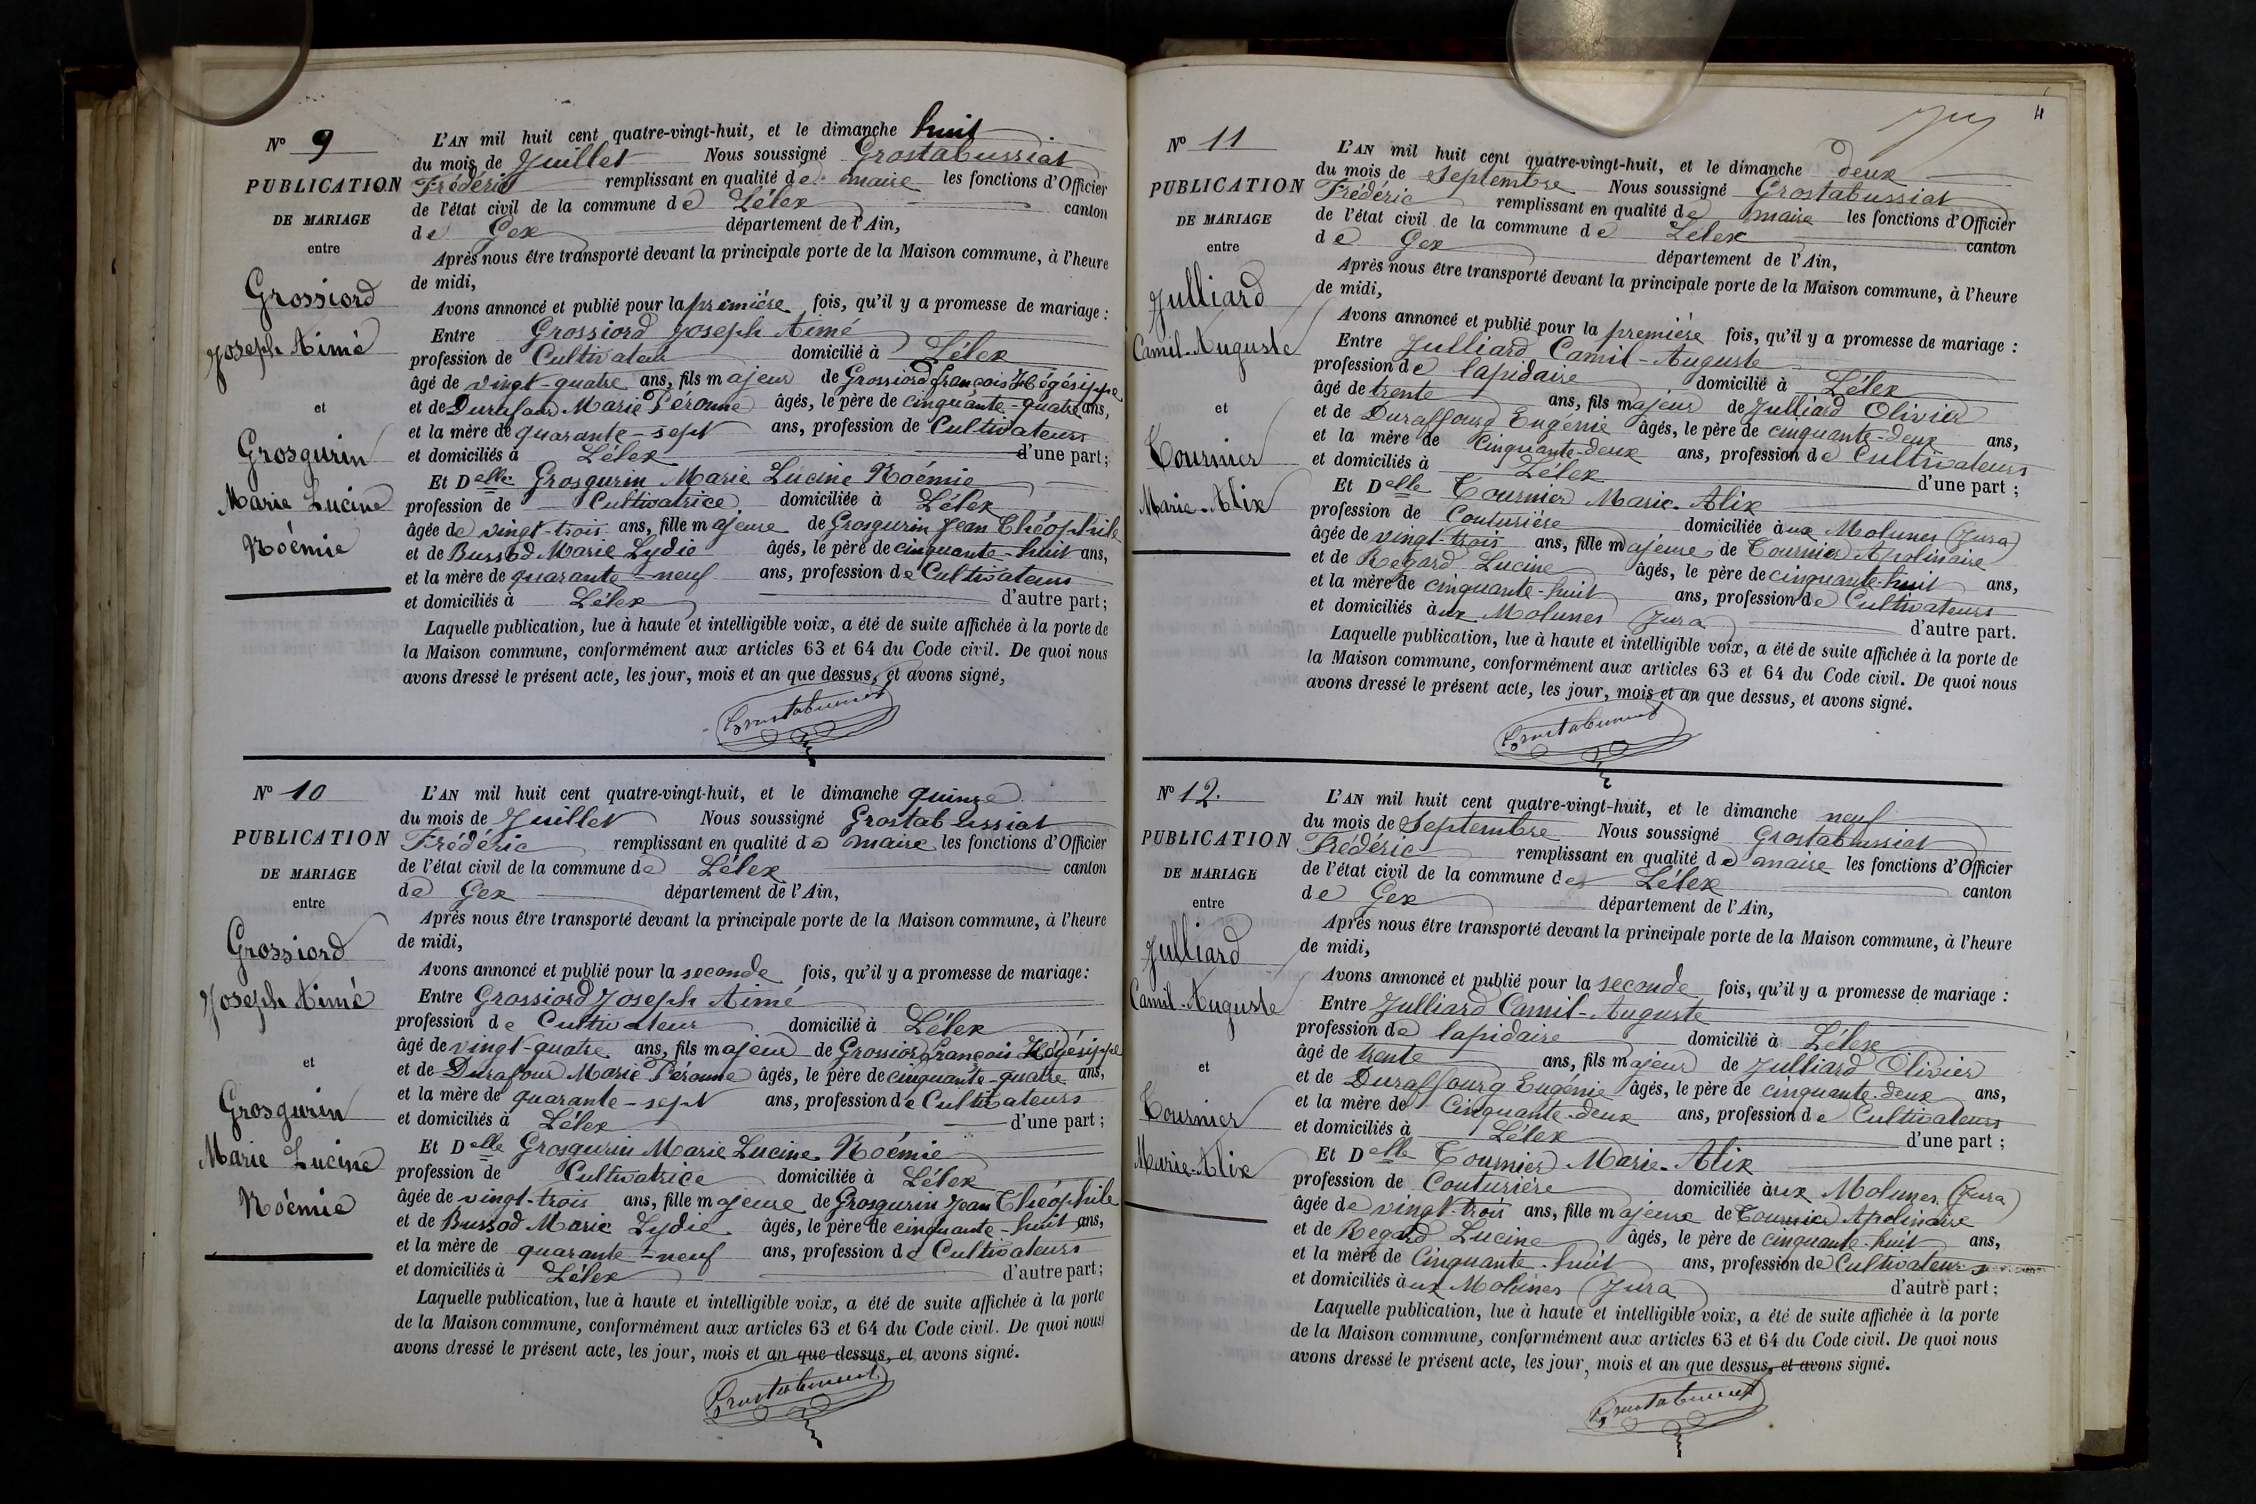 N° 9
PUBLICATION
DE MARIAGE
entre
Grossiord
Joseph Aimé
et
Grosgurin
Marie Lucine
Noémie
L'AN mil huit cent quatre-vingt-huit, et le dimanche huit
du mois de Juillet Nous soussigné Grostabussiat
Frédéric remplissant en qualité de maire les fonctions d'Officier
de l'état civil de la commune de Lélex canton
de Gex département de l'Ain,
Après nous être transporté devant la principale porte de la Maison commune, à l'heure
de midi,
Avons annoncé et publié pour la première fois, qu'il y a promesse de mariage :
Entre Grossiord Joseph Aimé
profession de Cultivateur domicilié à Lélex
âgé de vingt-quatre ans, fils majeur de Grossiord françois Hégésippe
et de Durafour Marie Péronne âgés, le père de cinquante-quatre ans,
et la mère de quarante-sept ans, profession de Cultivateurs
et domiciliés à Lélex d'une part;
Et Delle Grosgurin Marie Lucine Noémie
profession de Cultivatrice domiciliée à Lélex
âgée de vingt-trois ans, fille majeure de Grosgurin Jean Théophile
et de Bussod Marie Lydie âgés, le père de cinquante-huit ans,
et la mère de quarante-neuf ans, profession de Cultivateurs
et domiciliés à Lélex d'autre part;
Laquelle publication, lue à haute et intelligible voix, a été de suite affichée à la porte de
la Maison commune, conformément aux articles 63 et 64 du Code civil. De quoi nous
avons dressé le présent acte, les jour, mois et an que dessus, et avons signé,
Grostabussiat
N° 10
PUBLICATION
DE MARIAGE
entre
Grossiord
Joseph Aimé
et
Grosgurin
Marie Lucine
Noémie
L'AN mil huit cent quatre-vingt-huit, et le dimanche quinze
du mois de Juillet Nous soussigné Grostabussiat
Frédéric remplissant en qualité de maire les fonctions d'Officier
de l'état civil de la commune de Lélex canton
de Gex département de l'Ain,
Après nous être transporté devant la principale porte de la Maison commune, à l'heure
de midi,
Avons annoncé et publié pour la seconde fois, qu'il y a promesse de mariage:
Entre Grossiord Joseph Aimé
profession de Cultivateur domicilié à Lélex
âgé de vingt-quatre ans, fils majeur de Grossiord françois Hégésippe
et de Durafour Marie Péronne âgés, le père de cinquante-quatre ans,
et la mère de quarante-sept ans, profession de Cultivateurs
et domiciliés à Lélex d'une part ;
Et Delle Grosgurin Marie Lucine Noémie
profession de Cultivatrice domiciliée à Lélex
âgée de vingt-trois ans, fille majeure de Grosgurin Jean Théophile
et de Bussod Marie Lydie âgés, le père de cinquante-huit ans,
et la mère de quarante-neuf ans, profession de Cultivateurs
et domiciliés à Lélex d'autre part;
Laquelle publication, lue à haute et intelligible voix, a été de suite affichée à la porte
de la Maison commune, conformément aux articles 63 et 64 du Code civil. De quoi nous
avons dressé le présent acte, les jour, mois et an que dessus, et avons signé.
Grostabussiat
4
N° 11
PUBLICATION
DE MARIAGE
entre
Julliard
Camil-Auguste
et
Tournier
Marie-Alix
L'AN mil huit cent quatre-vingt-huit, et le dimanche deux
du mois de Septembre Nous soussigné Grostabussiat
Frédéric remplissant en qualité de maire les fonctions d'Officier
de l'état civil de la commune de Lélex canton
de Gex département de l'Ain,
Après nous être transporté devant la principale porte de la Maison commune, à l'heure
de midi,
Avons annoncé et publié pour la première fois, qu'il y a promesse de mariage :
Entre Julliard Camil-Auguste
profession de lapidaire domicilié à Lélex
âgé de trente ans, fils majeur de Julliard Olivier
et de Duraffourg Eugénie âgés, le père de cinquante-deux ans,
et la mère de Cinquante-deux ans, profession de Cultivateurs
et domiciliés à Lélex d'une part ;
Et Delle Tournier Marie-Alix
profession de Couturière domiciliée à ux Molunes (Jura)
âgée de vingt-trois ans, fille majeure de Tournier Apolinaire
et de Regard Lucine âgés, le père de cinquante-huit ans,
et la mère de cinquante-huit ans, profession de Cultivateurs
et domiciliés à ux Molunes (Jura) d'autre part.
Laquelle publication, lue à haute et intelligible voix, a été de suite affichée à la porte de
la Maison commune, conformément aux articles 63 et 64 du Code civil. De quoi nous
avons dressé le présent acte, les jour, mois et an que dessus, et avons signé.
Grostabussiat
N° 12.
PUBLICATION
DE MARIAGE
entre
Julliard
Camil-Auguste
et
Tournier
Marie-Alix
L'AN mil huit cent quatre-vingt-huit, et le dimanche neuf
du mois de Septembre Nous soussigné Grostabussiat
Frédéric remplissant en qualité de maire les fonctions d'Officier
de l'état civil de la commune de Lélex canton
de Gex département de l'Ain,
Après nous être transporté devant la principale porte de la Maison commune, à l'heure
de midi,
Avons annoncé et publié pour la seconde fois, qu'il y a promesse de mariage :
Entre Julliard Camil-Auguste
profession de lapidaire domicilié à Lélex
âgé de trente ans, fils majeur de Julliard Olivier
et de Duraffourg Eugénie âgés, le père de cinquante-deux ans,
et la mère de Cinquante-deux ans, profession de Cultivateurs
et domiciliés à Lélex d'une part ;
Et Delle Tournier Marie-Alix
profession de Couturière domiciliée à ux Molunes (Jura)
âgée de vingt-trois ans, fille majeure de Tournier Apolinaire
et de Regard Lucine âgés, le père de cinquante-huit ans,
et la mère de Cinquante-huit ans, profession de Cultivateurs
et domiciliés à ux Molunes (Jura) d'autre part ;
Laquelle publication, lue à haute et intelligible voix, a été de suite affichée à la porte
de la Maison commune, conformément aux articles 63 et 64 du Code civil. De quoi nous
avons dressé le présent acte, les jour, mois et an que dessus, et avons signé.
Grostabussiat